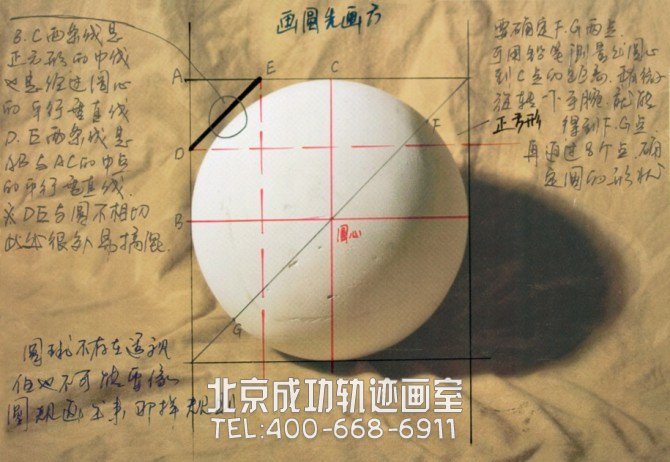 画圆先画方
B.C两条线是
正方形的中线
也是经过圆心
的平行垂直线
D.E两条线是
AB与AC的中点
的平行垂直线.
※DE与圆不相切
此处很容易搞混.
要确定F.G两点.
可用铅笔测量出圆心
到C点的距离,再
旋转一下手腕,就能
得到F.G点
再通过8个点确
定圆的形状
正方形
A
E
C
D
F
B
圆心
G
圆球不存在透视
但也不可能要像
圆规画出来那样规则
北京成功轨迹画室
TEL:400-668-6911